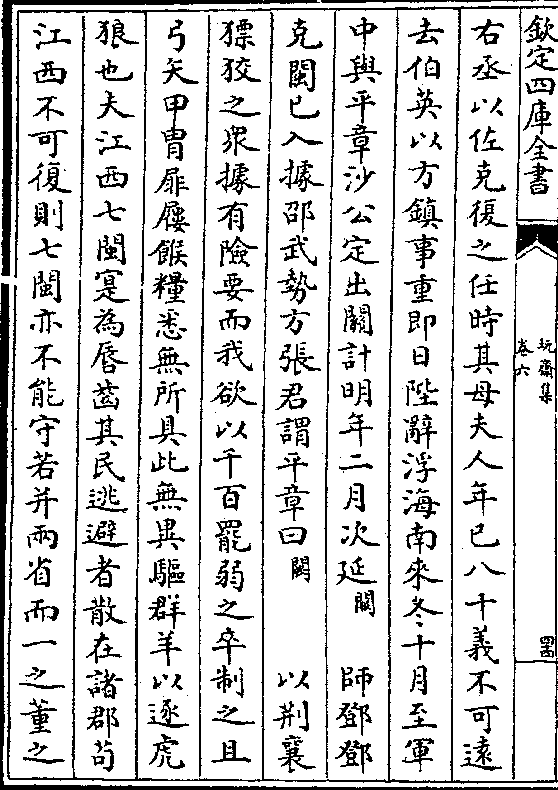 欽定四庫全書
玩齋集
卷六
右丞以佐克復之任時其母夫人年已八十義不可遠
去伯英以方鎮事重即日陛辭浮海南來冬十月至軍
中與平章沙公定出關計明年二月次延闕師鄧鄧
克闽已入據邵武勢方張君謂平章曰闕以荆襄
獠狡之衆據有險要而我欲以千百罷弱之卒制之且
弓矢甲胄屝屨餱糧悉無所具此無異驅群羊以逐虎
狼也夫江西七閩寔為唇齒其民逃避者散在諸郡苟
江西不可復則七閩亦不能守若并兩省而一之董之